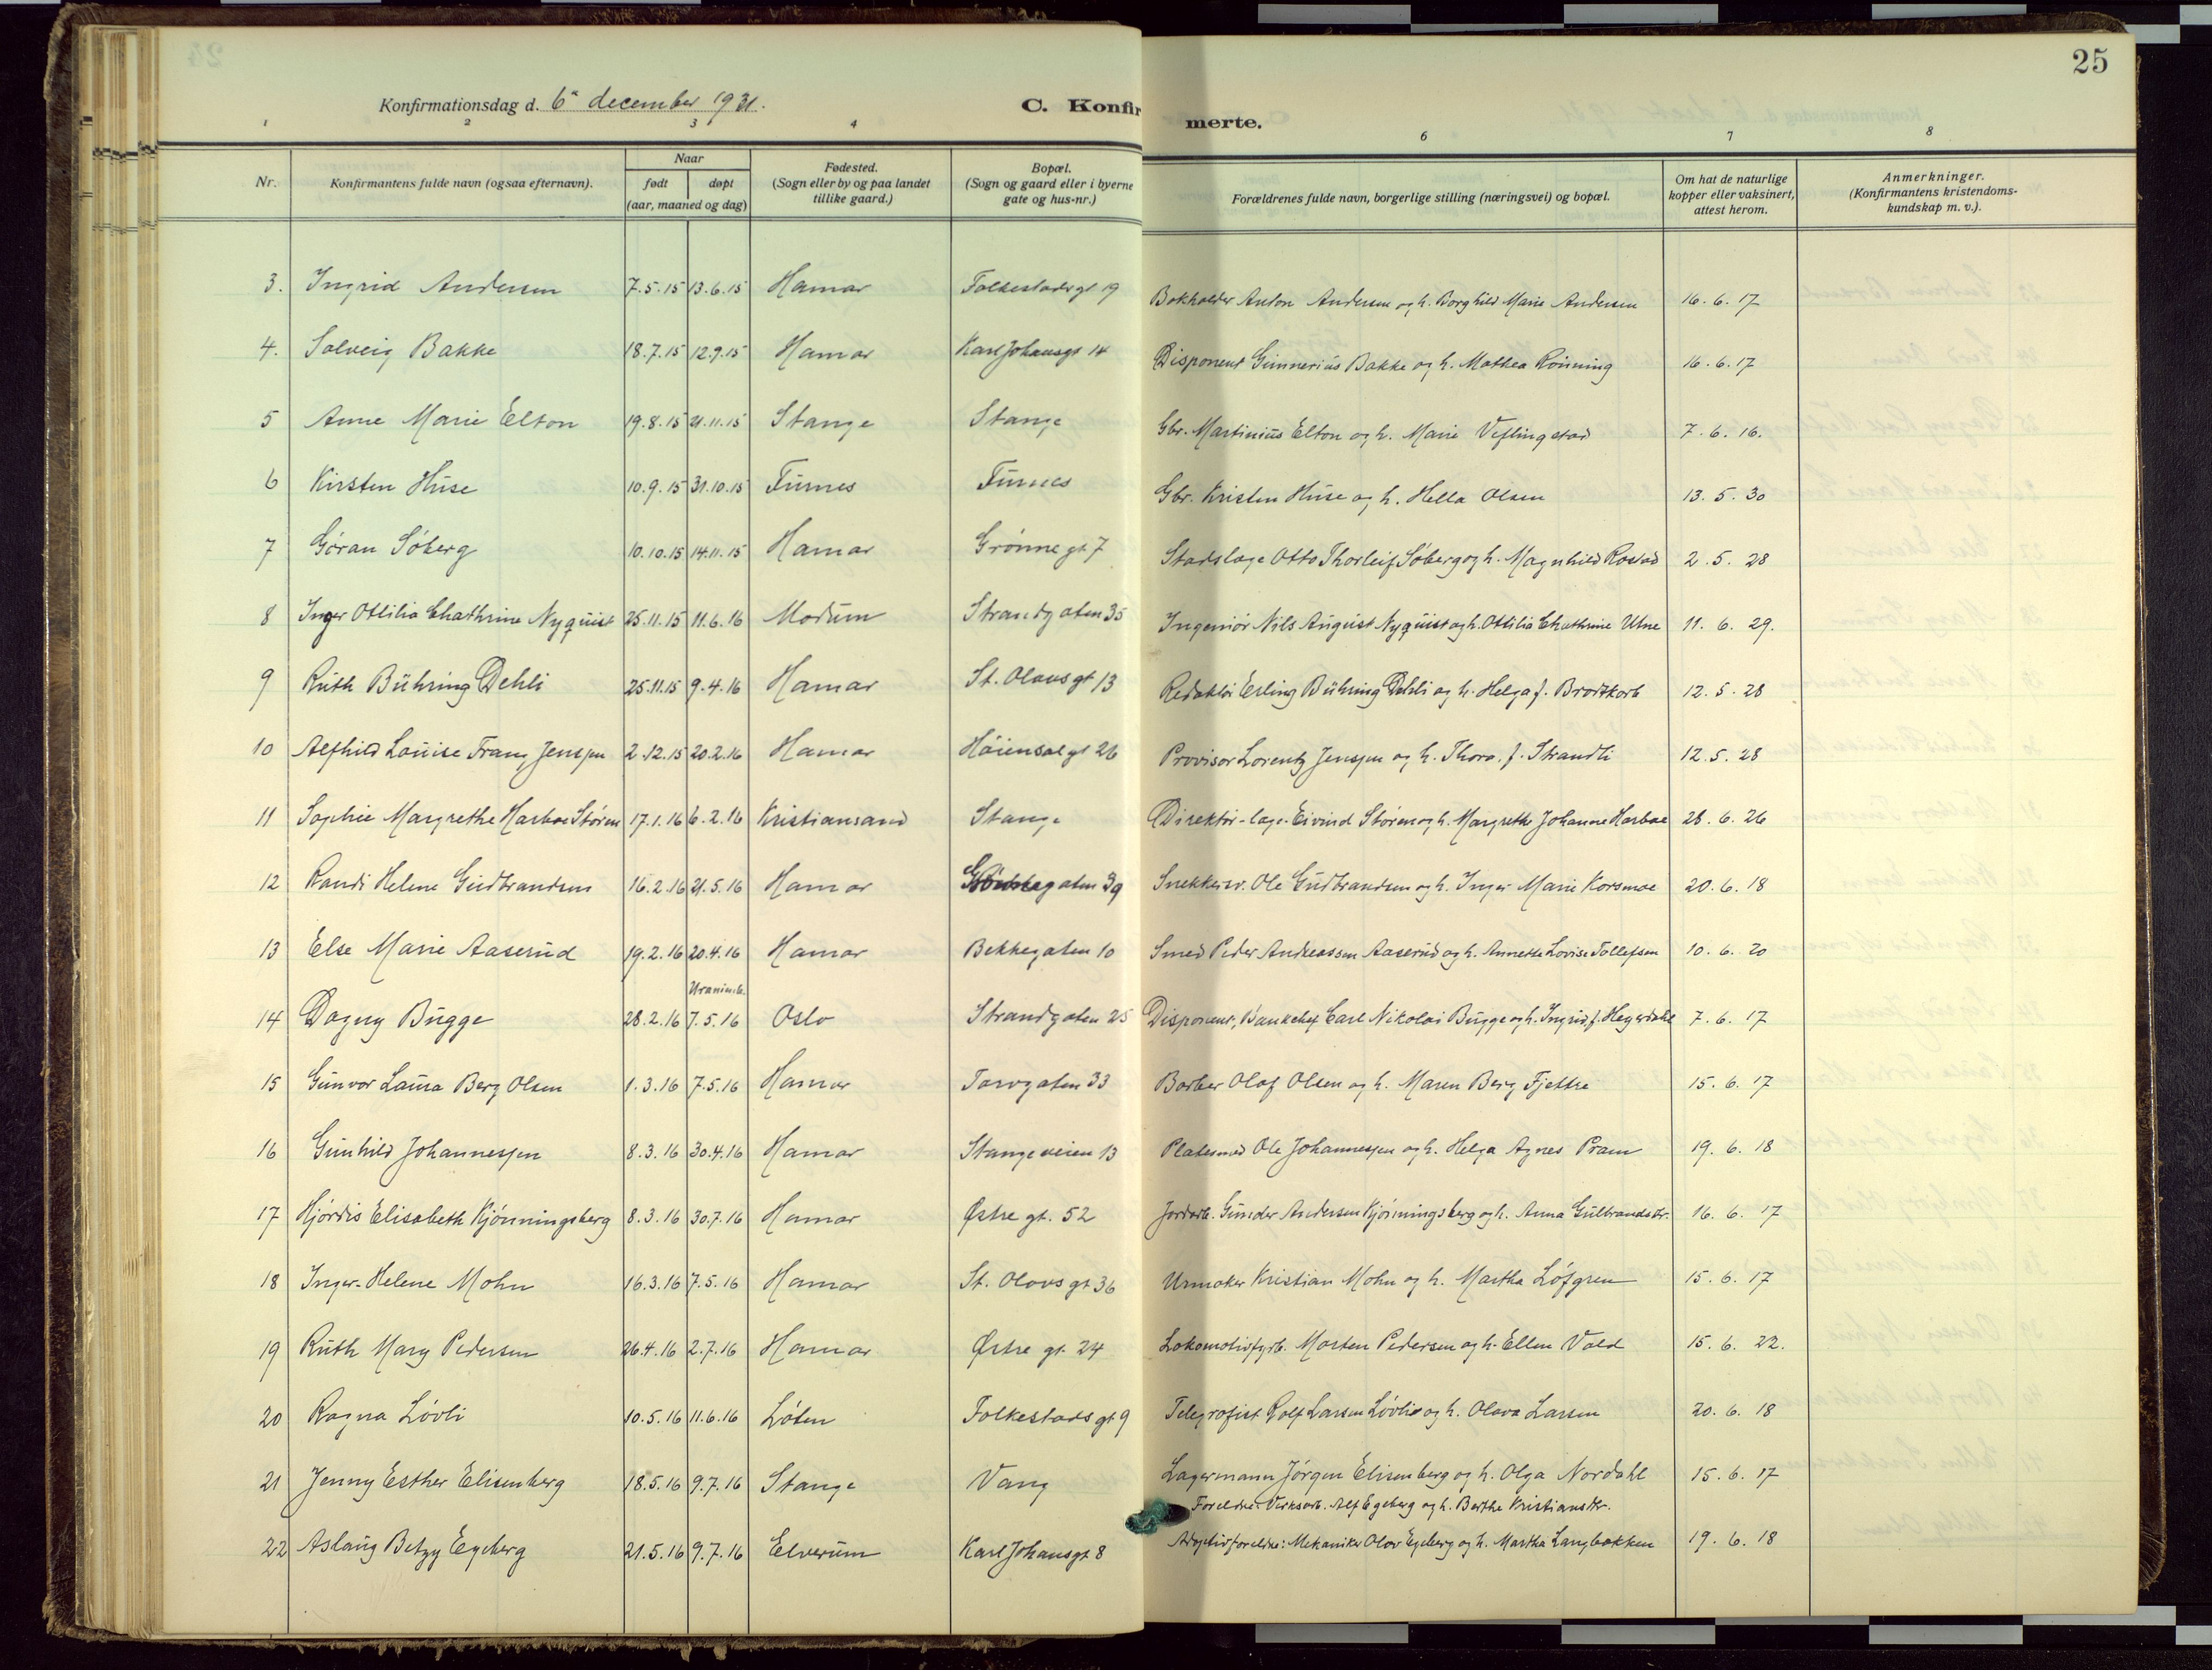 25
Konfirmationsdag d. 6te december 1931.
C. Konfir
merte.
1 2 3 4 6 7 8
Nr.
Konfirmantens fulde navn (ogsaa efternavn).
Naar
født døpt
(aar, maaned og dag)
Fødested.
(Sogn eller by og paa landet
tillike gaard.)
Bopæl.
(Sogn og gaard eller i byerne
gate og hus-nr.)
Forældrenes fulde navn, borgerlige stilling (næringsvei) og bopæl.
Om hat de naturlige
kopper eller vaksinert,
attest herom.
Anmerkninger.
(Konfirmantens kristendoms-
kundskap m. v.).
3. Ingrid Andersen 7.5.15 13.6.15 Hamar Folkestadsgt 19 Bokholder Anton Andersen og h. Borghild Marie Andersen 16.6.17
4. Solveig Bakke 18.7.15 12.9.15 Hamar Karl Johansgt 14 Disponent Gunnerius Bakke og h. Mathea Rönning 16.6.17
5 Anne Marie Elton 19.8.15 21.11.15 Stange Stange Gbr. Martinius Elton og h. Marie Veflingstad 7.6.16.
6 Kirsten Huse 10.9.15 31.10.15 Furnes Furnes Gbr. Kristen Huse og h. Hella Olsen 13.5.30
7 Göran Söberg 10.10.15 14.11.15 Hamar Grönnegt 7 Stadslæge Otto Thorleif Söberg og h. Magnhild Rostad 2.5.28
8 Inger Ottilia Chathrine Nyquist 25.11.15 11.6.16 Modum Strandgaten 35 Ingeniör Nils August Nyquist og h. Ottilia Chathrine Utne 11.6.29.
9 Ruth Bühring Dehli 25.11.15 9.4.16 Hamar St. Olavsgt 13 Redaktör Erling Bühring Dehli og h. Helga f. Brodtkorb 12.5.28
10 Alfhild Louise Frang Jenssen 2.12.15 20.2.16 Hamar Höiensalgt 26 Provisor Lorentz Jenssen og h. Thora, f. Strandli 12.5.28
11 Sophie Margrethe Harboe Stören 17.1.16 6.2.16 Kristiansand Stange Direktör-læge Eivind Stören og h. Margrethe Johanne Harboe 28.6.26
12 Randi Helene Gudbrandsen 16.2.16 21.5.16 Hamar gaten 39 Snekkersv. Ole Gudbrandsen og h. Inger Marie Korsmoe 20.6.18
13 Else Marie Aaserud 19.2.16 20.4.16 Hamar Bekkegaten 10 Smed Peder Andreassen Aaserud og h. Annette Lovise Tollefsen 10.6.20
Uranienb.
14 Dagny Bugge 28.2.16 7.5.16 Oslo Strandgaten 25 Disponent, Bankchef Carl Nikolai Bugge og h. Ingrid, f. Heyerdahl 7.6.17
15 Gunvor Laura Berg Olsen 1.3.16 7.5.16 Hamar Torvgaten 33 Barber Olaf Olsen og h. Maren Berg Fjettre 15.6.17
16 Gunhild Johannessen 8.3.16 30.4.16 Hamar Stangeveien 13 Platesmed Ole Johannessen og h. Helga Agnes Pram 19.6.18
17 Hjördis Elisabeth Kjönningsberg 8.3.16 30.7.16 Hamar Østre gt. 52 Jordarb. Gunder Andersen Kjönningsberg og h. Anna Gulbrandsdtr. 16.6.17
18 Inger-Helene Mohn 16.3.16 7.5.16 Hamar St. Olavsgt 36 Urmaker Kristian Mohn og h. Martha Löfgren 15.6.17
19 Ruth Mary Pedersen 26.4.16 2.7.16 Hamar Østre gt. 24 Lokomotivfyrb. Morten Pedersen og h. Ellen Vold 15.6.22.
20 Ragna Lövli 10.5.16 11.6.16 Löten Folkestadsgt 9 Telegrafist Rolf Larsen Lövlie og h. Olava Larsen 20.6.18
21 Jenny Esther Elisenberg 18.5.16 9.7.16 Stange Vang Lagermann Jörgen Elisenberg og h. Olga Nordahl 15.6.17
Foreldre: Verksarb. Alf Egeberg og h. Berthe Kristiansdtr.
22 Aslaug Betzy Egeberg 21.5.16 9.7.16 Elverum Karl Johansgt. 8 Adoptivforeldre: Mekaniker Olav Egeberg og h. Martha Langbakken 19.6.18